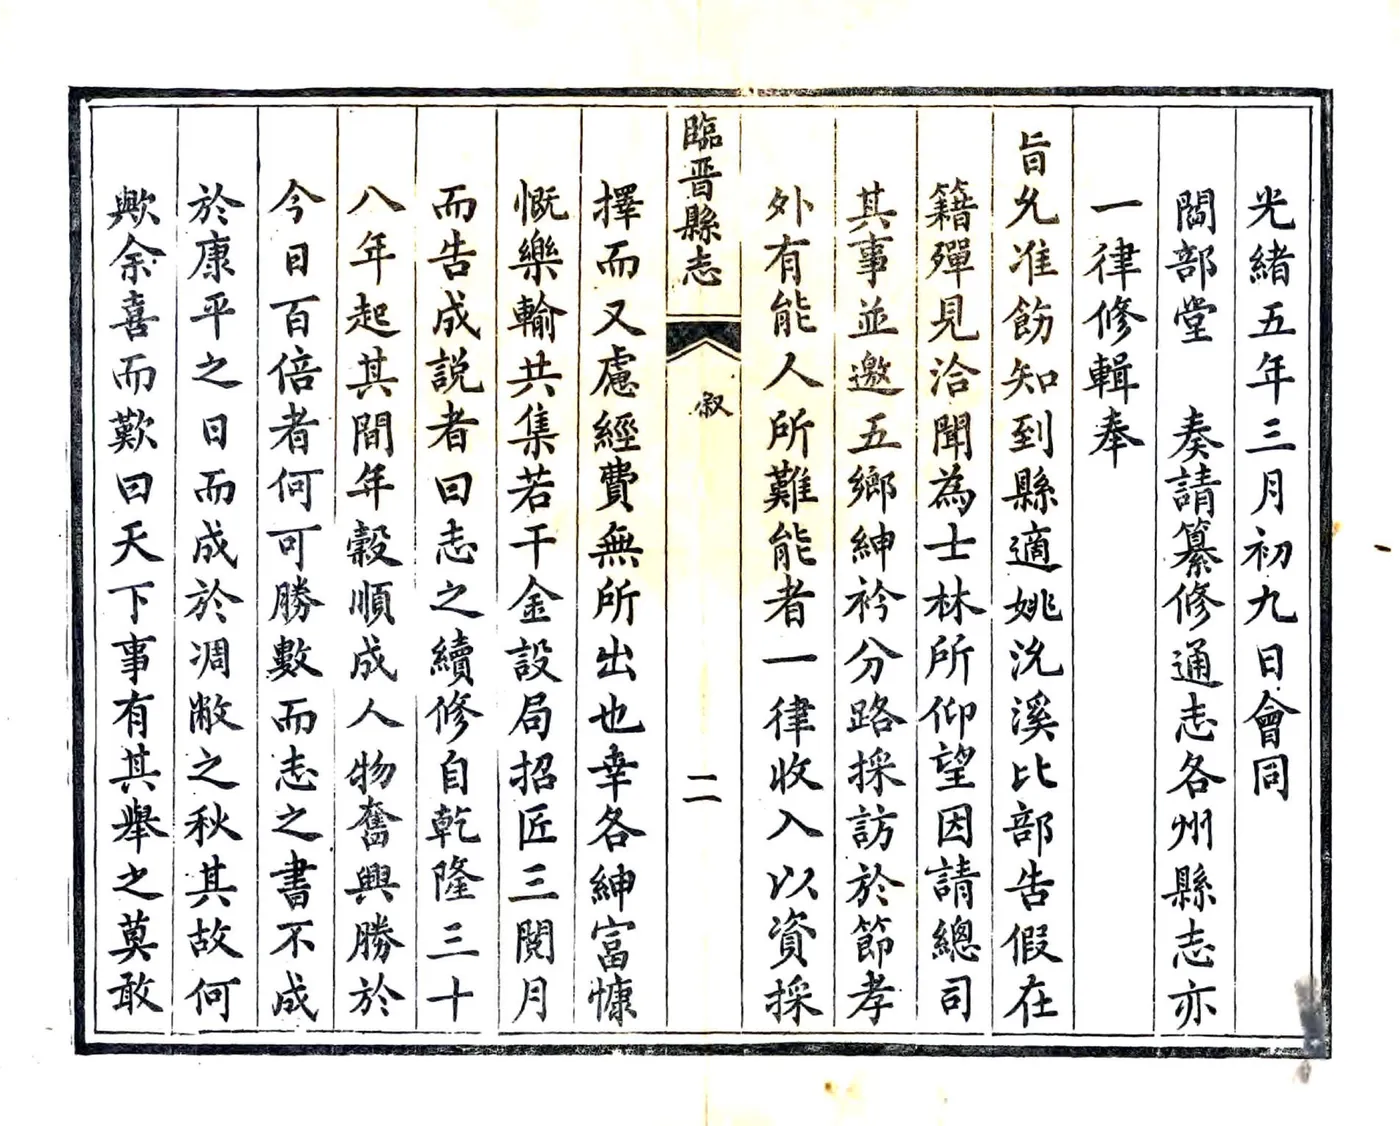 光緒五年三月初九日會同
閻部堂 奏請纂修通志各州縣志亦
一律修輯奉
旨允准飭知到縣適姚沇溪比部告假在
籍殫見洽聞為士林所仰望因請總司
其事並邀五鄉紳衿分路採訪於節孝
外有能人所難能者一律收入以資採
臨晉縣志
敘
二
擇而又慮經費無所出也幸各紳富慷
慨樂輸共集若干金設局招匠三閱月
而告成説者曰志之續修自乾隆三十
八年起其間年穀順成人物奮興勝於
今日百倍者何可勝數而志之書不成
於康平之日而成於凋敝之秋其故何
歟余喜而歎曰天下事有其舉之莫敢